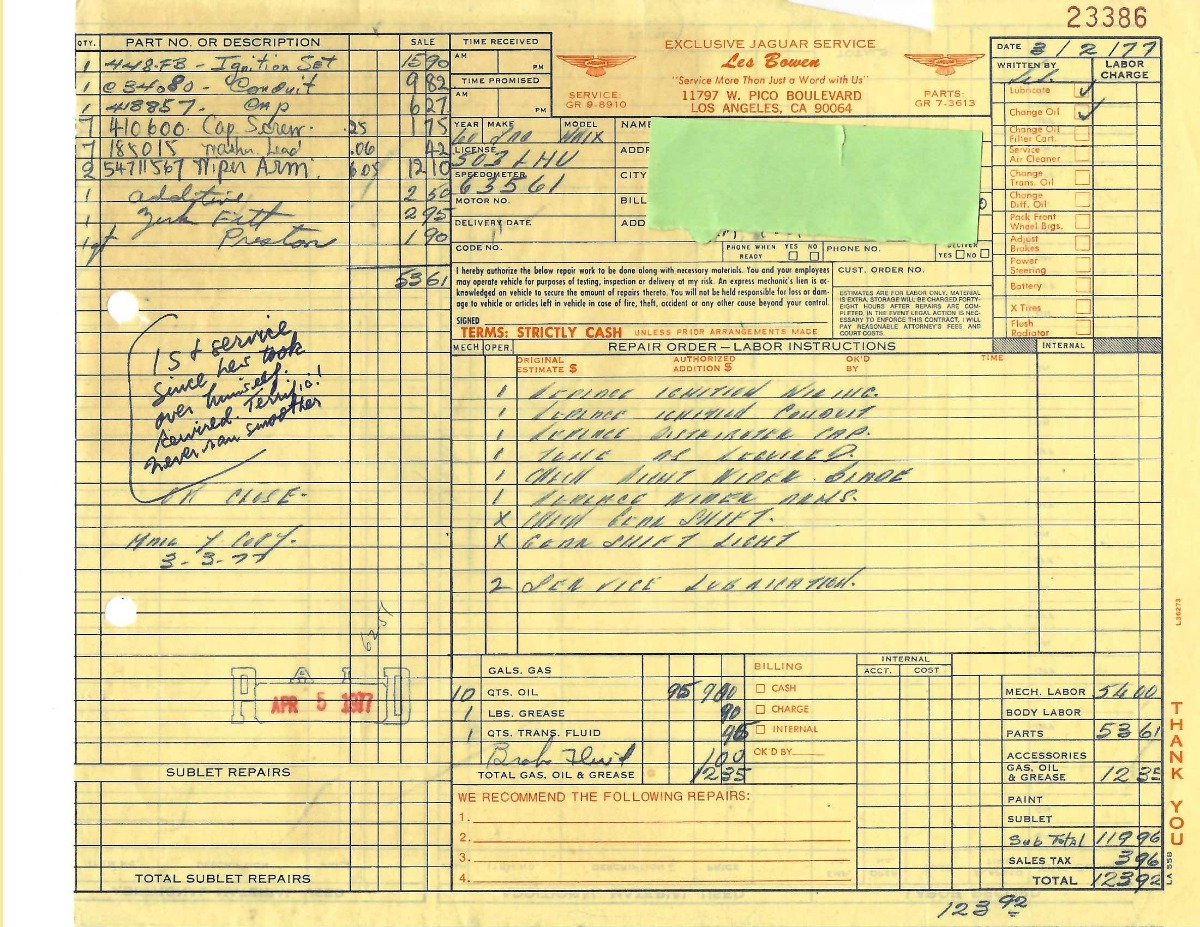 23386
QTY. PART NO. OR DESCRIPTION SALE
1 448-FB - Ignition Set 15 90
1 C34080 - Conduit 9 82
1 418857. Cap 6 27
7 410600. Cap Screw. .25 1 75
7 185015 Washer Lead .06 42
2 54711567 Wiper Arm. 6.05 12 10
1 additive 2 50
1 Zerk Fitt 2 95
1 qt Preston 1 90
53 61
1st service
since Les took
over himself.
Terrific!
never ran smoother
OK CLOSE.
Mail Y COPY.
3-3-77
6257
PAID
APR 5 1977
SUBLET REPAIRS
TOTAL SUBLET REPAIRS
TIME RECEIVED
AM PM
TIME PROMISED
AM PM
EXCLUSIVE JAGUAR SERVICE
Les Bowen
"Service More Than Just a Word with Us"
SERVICE: GR 9-8910
11797 W. PICO BOULEVARD
LOS ANGELES, CA 90064
PARTS: GR 7-3613
YEAR MAKE MODEL NAME
60 Jag MKIX
LICENSE ADDR
503 LHU
SPEEDOMETER CITY
63561
MOTOR NO. BILL
DELIVERY DATE ADD
CODE NO. PHONE WHEN READY YES NO PHONE NO. DELIVER YES NO
I hereby authorize the below repair work to be done along with necessary materials. You and your employees
may operate vehicle for purposes of testing, inspection or delivery at my risk. An express mechanic's lien is ac-
knowledged on vehicle to secure the amount of repairs thereto. You will not be held responsible for loss or dam-
age to vehicle or articles left in vehicle in case of fire, theft, accident or any other cause beyond your control.
SIGNED
TERMS: STRICTLY CASH UNLESS PRIOR ARRANGEMENTS MADE
CUST. ORDER NO.
ESTIMATES ARE FOR LABOR ONLY, MATERIAL
IS EXTRA. STORAGE WILL BE CHARGED FORTY-
EIGHT HOURS AFTER REPAIRS ARE COM-
PLETED. IN THE EVENT LEGAL ACTION IS NEC-
ESSARY TO ENFORCE THIS CONTRACT, I WILL
PAY REASONABLE ATTORNEY'S FEES AND
COURT COSTS.
DATE 3/2/77
WRITTEN BY Les. LABOR CHARGE
Lubricate ✓
Change Oil ✓
Change Oil Filter Cart.
Service Air Cleaner
Change Trans. Oil
Change Diff. Oil
Pack Front Wheel Brgs.
Adjust Brakes
Power Steering
Battery
X Tires
Flush Radiator
MECH OPER. REPAIR ORDER — LABOR INSTRUCTIONS INTERNAL
ORIGINAL ESTIMATE $ AUTHORIZED ADDITION $ OK'D BY TIME
1 REPLACE IGNITION WIRING.
1 REPLACE IGNITION CONDUIT
1 REPLACE DISTRIBUTER CAP.
1 TUNE AS REQUIRED.
1 CHECK RIGHT WIPER BLADE
1 REPLACE WIPER ARMS.
X CHECK GEAR SHIFT.
X GEAR SHIFT LIGHT
2 SERVICE LUBRICATION.
GALS. GAS
10 QTS. OIL 95 9 00
1 LBS. GREASE 90
1 QTS. TRANS. FLUID
Brake Fluid 1 00
TOTAL GAS, OIL & GREASE 12 35
BILLING
CASH
CHARGE
INTERNAL
OK'D BY
INTERNAL
ACCT. COST
WE RECOMMEND THE FOLLOWING REPAIRS:
1.
2.
3.
4.
MECH. LABOR 54 00
BODY LABOR
PARTS 53 61
ACCESSORIES
GAS, OIL & GREASE 12 35
PAINT
SUBLET
Sub Total 119 96
SALES TAX 3 96
TOTAL 123 92
123 92
L36273
THANK YOU
LA 558